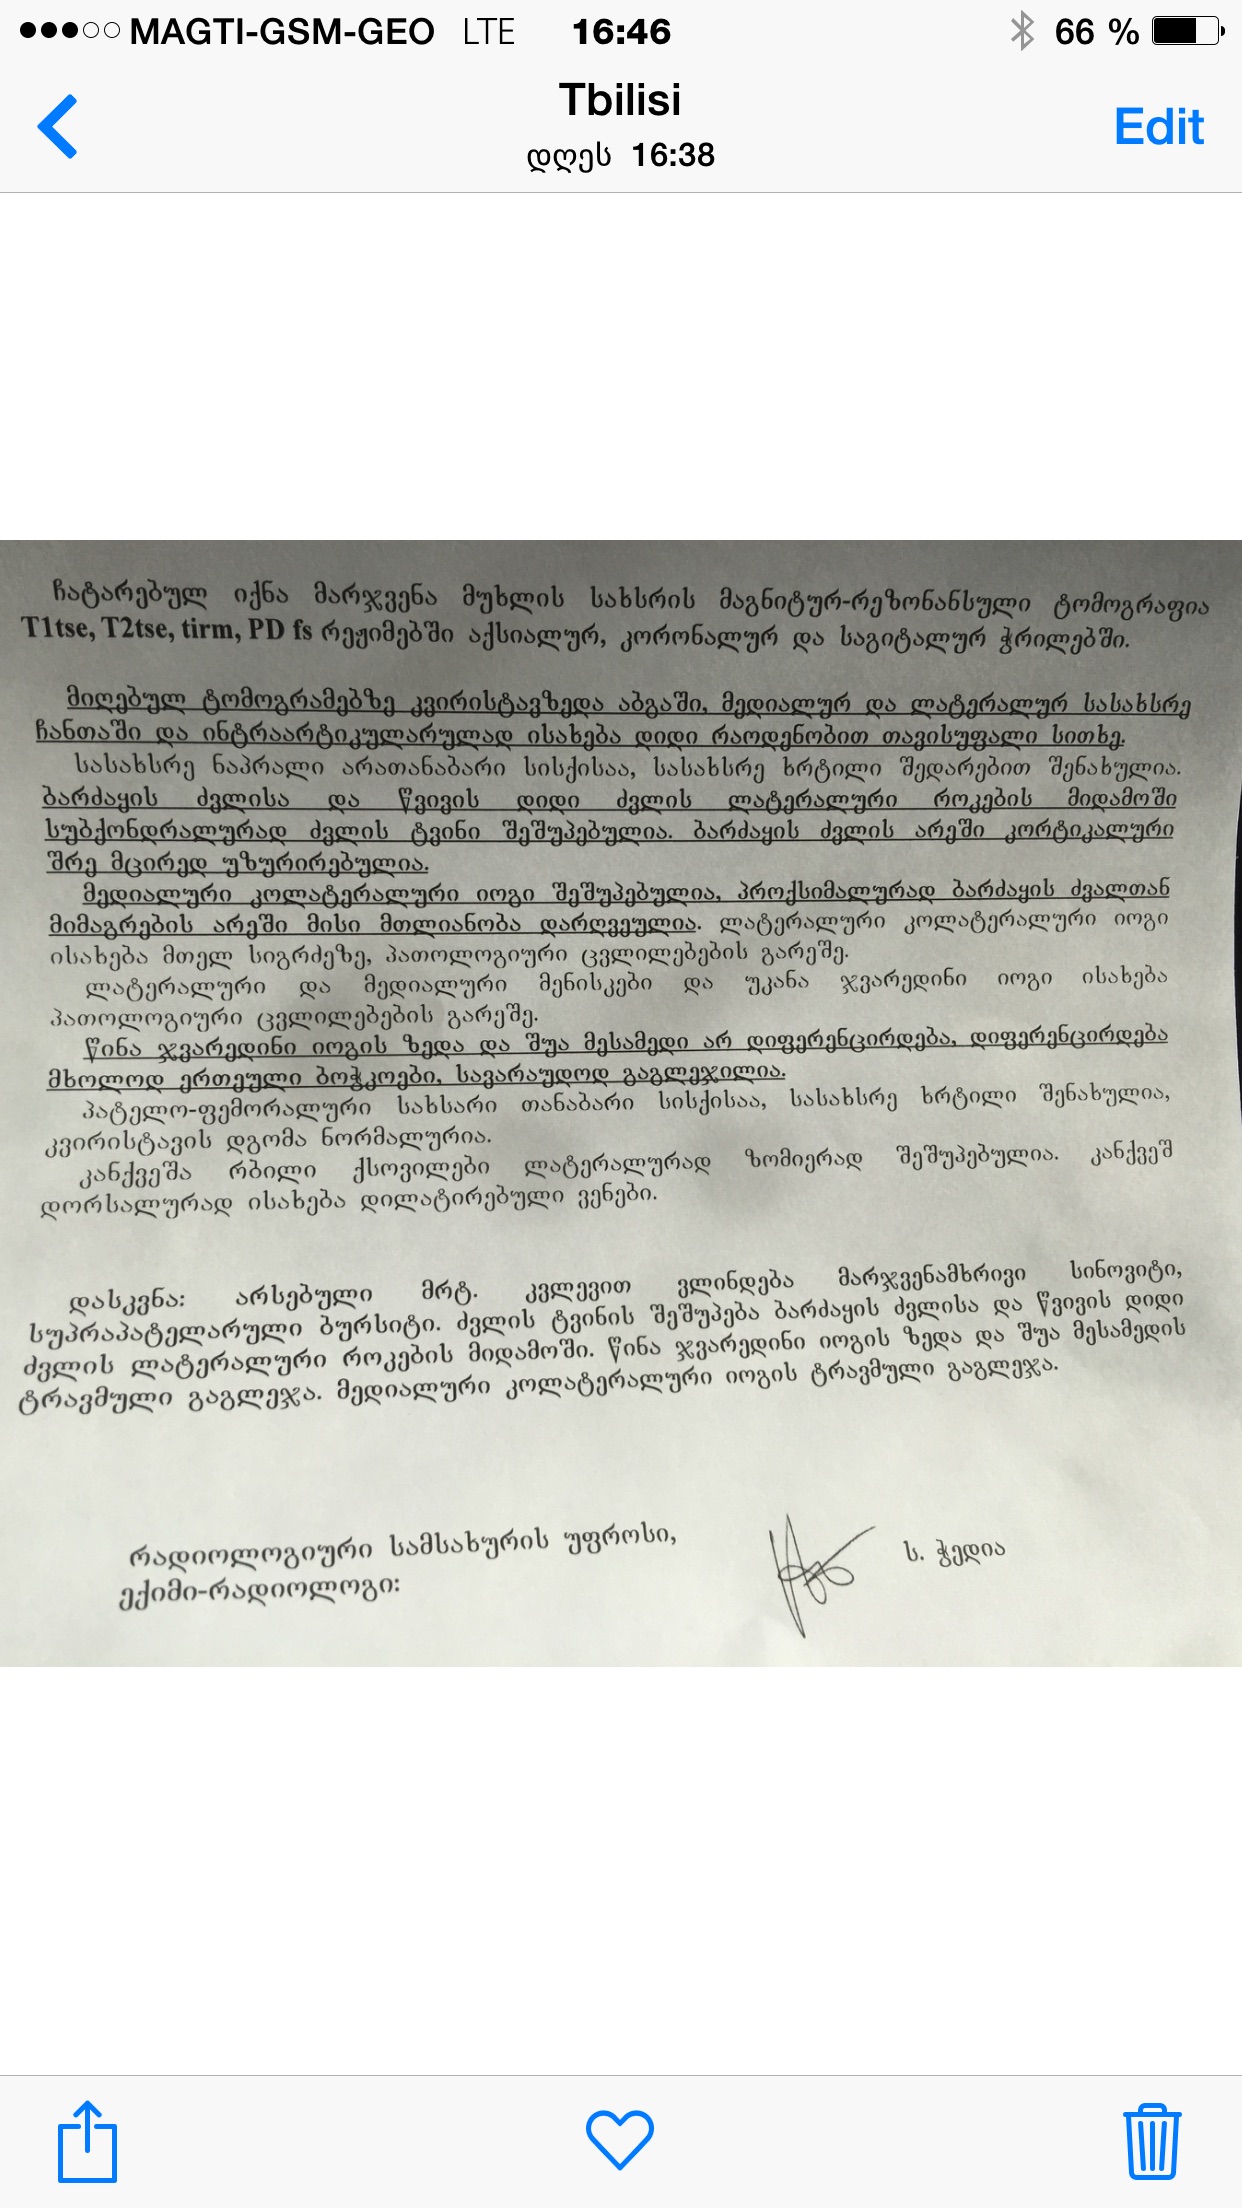 MAGTI-GSM-GEO LTE 16:46 66 %
Tbilisi
Edit
დღეს 16:38
ჩატარებულ იქნა მარჯვენა მუხლის სახსრის მაგნიტურ-რეზონანსული ტომოგრაფია
T1tse, T2tse, tirm, PD fs რეჟიმებში აქსიალურ, კორონალურ და საგიტალურ ჭრილებში.
მიღებულ ტომოგრამებზე კვირისტავზედა აბგაში, მედიალურ და ლატერალურ სასახსრე
ჩანთაში და ინტრაარტიკულარულად ისახება დიდი რაოდენობით თავისუფალი სითხე.
სასახსრე ნაპრალი არათანაბარი სისქისაა, სასახსრე ხრტილი შედარებით შენახულია.
ბარძაყის ძვლისა და წვივის დიდი ძვლის ლატერალური როკების მიდამოში
სუბქონდრალურად ძვლის ტვინი შეშუპებულია. ბარძაყის ძვლის არეში კორტიკალური
შრე მცირედ უზურირებულია.
მედიალური კოლატერალური იოგი შეშუპებულია, პროქსიმალურად ბარძაყის ძვალთან
მიმაგრების არეში მისი მთლიანობა დარღვეულია. ლატერალური კოლატერალური იოგი
ისახება მთელ სიგრძეზე, პათოლოგიური ცვლილებების გარეშე.
ლატერალური და მედიალური მენისკები და უკანა ჯვარედინი იოგი ისახება
პათოლოგიური ცვლილებების გარეშე.
წინა ჯვარედინი იოგის ზედა და შუა მესამედი არ დიფერენცირდება, დიფერენცირდება
მხოლოდ ერთეული ბოჭკოები, სავარაუდოდ გაგლეჯილია.
პატელო-ფემორალური სახსარი თანაბარი სისქისაა, სასახსრე ხრტილი შენახულია,
კვირისტავის დგომა ნორმალურია.
კანქვეშა რბილი ქსოვილები ლატერალურად ზომიერად შეშუპებულია. კანქვეშ
დორსალურად ისახება დილატირებული ვენები.
დასკვნა: არსებული მრტ. კვლევით ვლინდება მარჯვენამხრივი სინოვიტი,
სუპრაპატელარული ბურსიტი. ძვლის ტვინის შეშუპება ბარძაყის ძვლისა და წვივის დიდი
ძვლის ლატერალური როკების მიდამოში. წინა ჯვარედინი იოგის ზედა და შუა მესამედის
ტრავმული გაგლეჯა. მედიალური კოლატერალური იოგის ტრავმული გაგლეჯა.
რადიოლოგიური სამსახურის უფროსი,
ექიმი-რადიოლოგი: ს. ჭედია